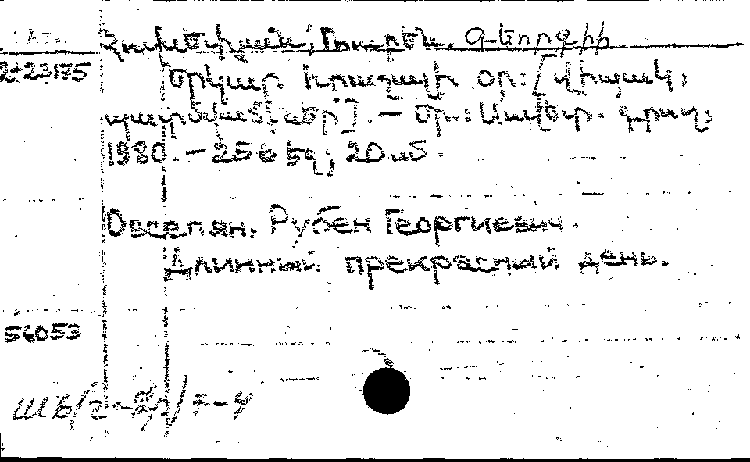 Հովսեփյան, Ռուբեն Գեորգիի
2-23175
Երկար հրաշալի օր: [Վիպակ,
պատմվածքներ]. — Եր.: Սովետ. գրող,
1980. — 256 եջ; 20 սմ.
Овсепян, Рубен Георгиевич.
Длинный прекрасный день.
56053